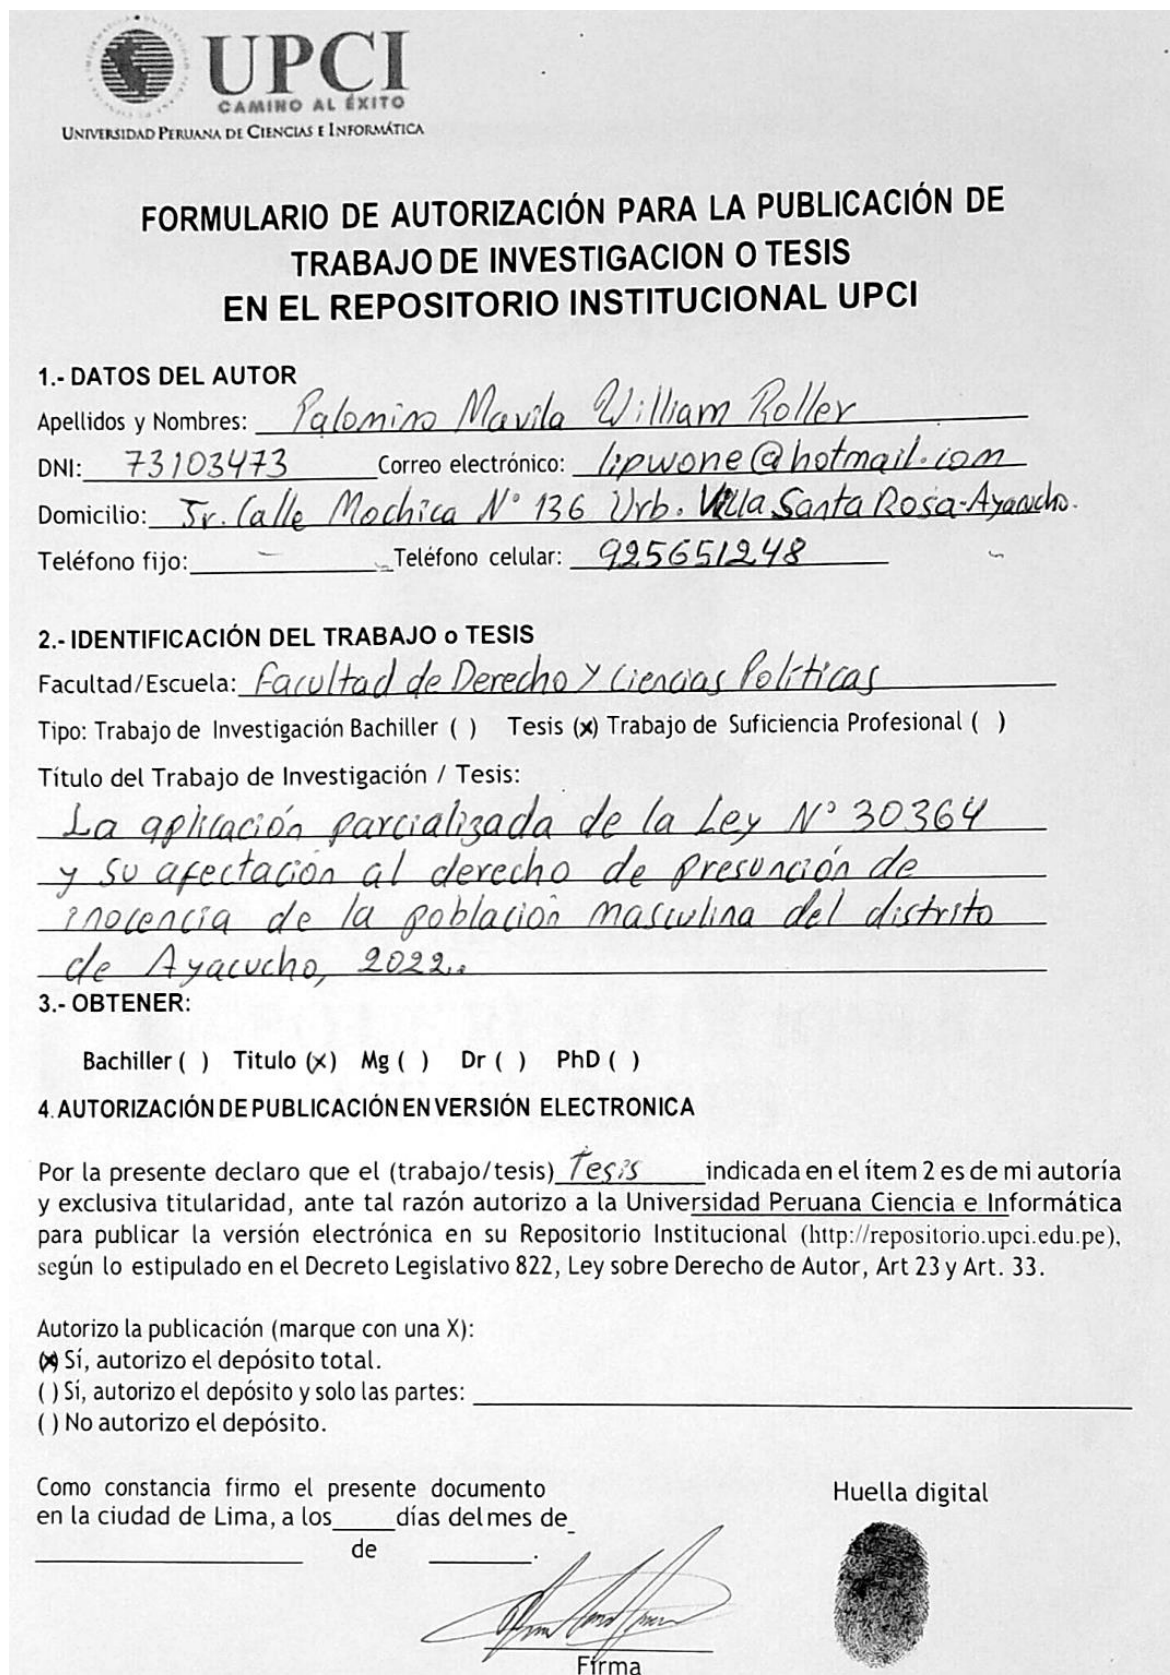 UPCI
CAMINO AL ÉXITO
UNIVERSIDAD PERUANA DE CIENCIAS E INFORMÁTICA
FORMULARIO DE AUTORIZACIÓN PARA LA PUBLICACIÓN DE
TRABAJO DE INVESTIGACION O TESIS
EN EL REPOSITORIO INSTITUCIONAL UPCI
1.- DATOS DEL AUTOR
Apellidos y Nombres: Palomino Mavila William Roller
DNI: 73103473 Correo electrónico: lipwone@hotmail.com
Domicilio: Jr. Calle Mochica N° 136 Urb. Villa Santa Rosa-Ayacucho.
Teléfono fijo: - Teléfono celular: 925651248
2.- IDENTIFICACIÓN DEL TRABAJO o TESIS
Facultad/Escuela: Facultad de Derecho y Ciencias Políticas
Tipo: Trabajo de Investigación Bachiller ( ) Tesis (x) Trabajo de Suficiencia Profesional ( )
Título del Trabajo de Investigación / Tesis:
La aplicación parcializada de la Ley N° 30364
y su afectación al derecho de presunción de
inocencia de la población masculina del distrito
de Ayacucho, 2022..
3.- OBTENER:
Bachiller ( ) Titulo (x) Mg ( ) Dr ( ) PhD ( )
4. AUTORIZACIÓN DE PUBLICACIÓN EN VERSIÓN ELECTRONICA
Por la presente declaro que el (trabajo/tesis) Tesis indicada en el ítem 2 es de mi autoría
y exclusiva titularidad, ante tal razón autorizo a la Universidad Peruana Ciencia e Informática
para publicar la versión electrónica en su Repositorio Institucional (http://repositorio.upci.edu.pe),
según lo estipulado en el Decreto Legislativo 822, Ley sobre Derecho de Autor, Art 23 y Art. 33.
Autorizo la publicación (marque con una X):
(x) Sí, autorizo el depósito total.
( ) Sí, autorizo el depósito y solo las partes:
( ) No autorizo el depósito.
Como constancia firmo el presente documento
en la ciudad de Lima, a los ____ días del mes de_
____ de ____.
Huella digital
Firma